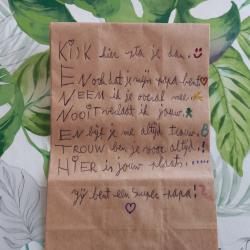 KijK hier sta je dan.
EN ook dat je mijn papa bent
NEEM ik je overal mee.
NOOIT verlaat ik jouw.
EN blijf je me altijd trouw.
TROUW ben je voor altijd.!
HiER is jouw plaats.....
Jij bent een super-papa!